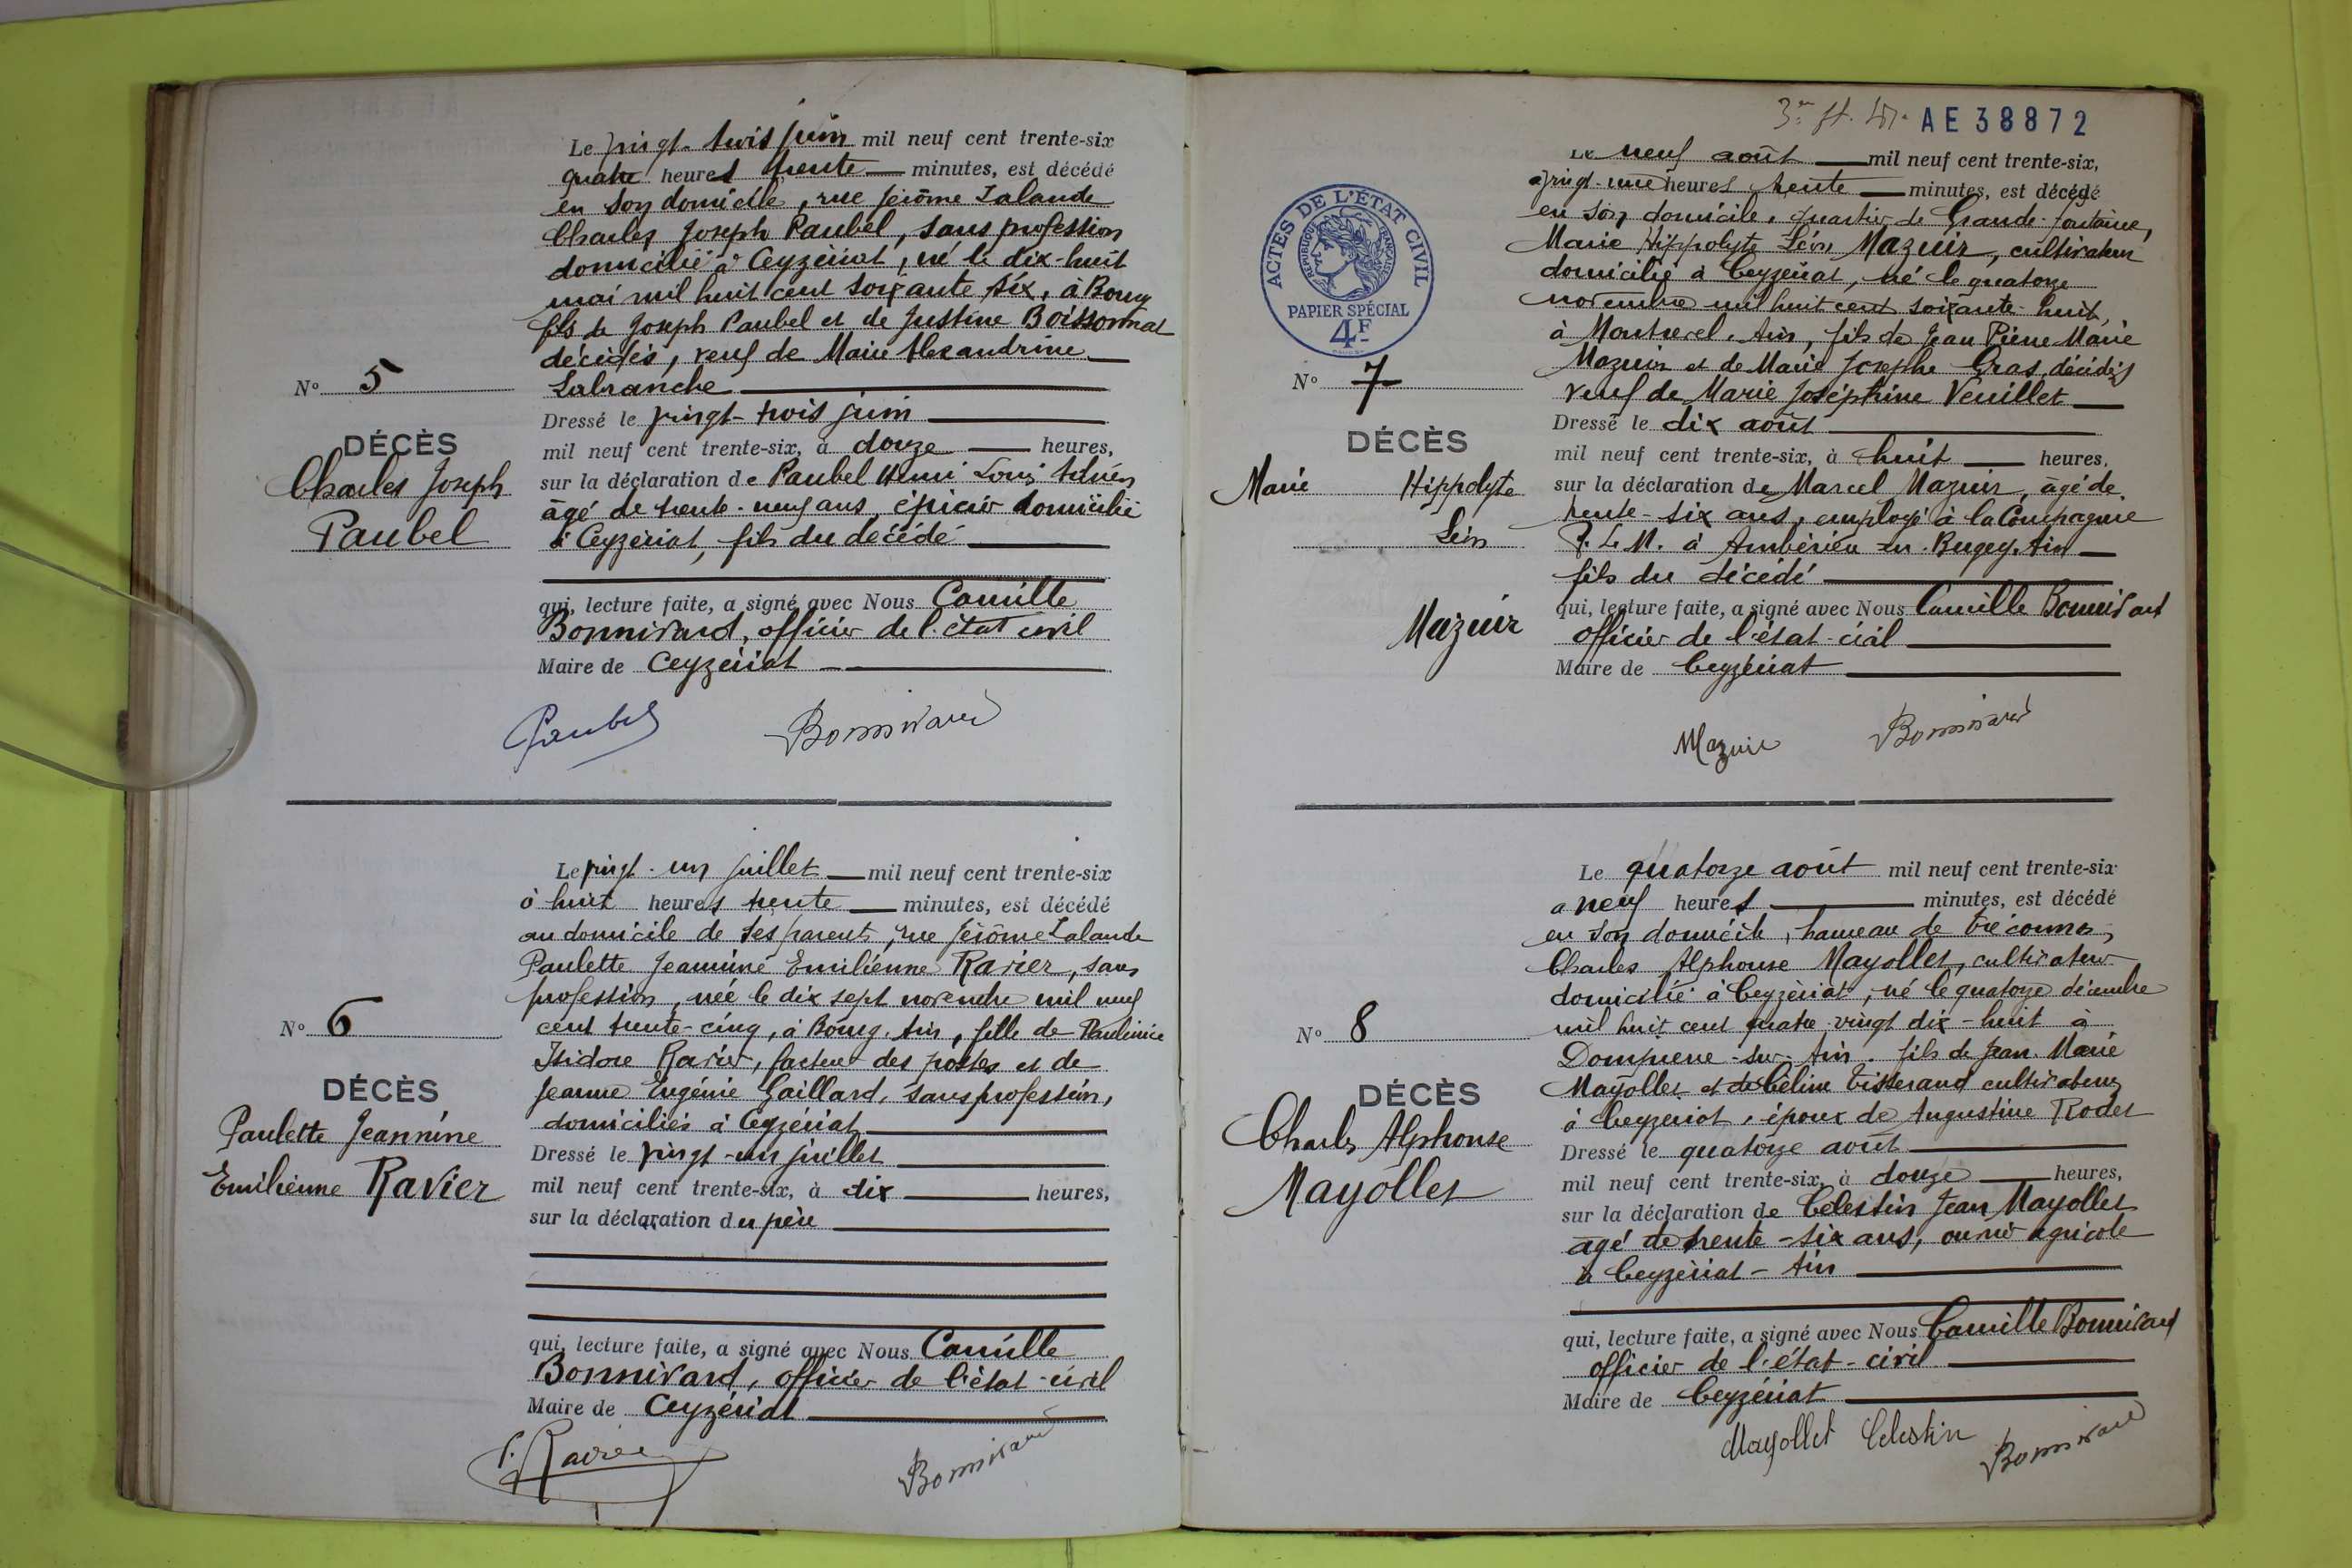 Le vingt-trois juin mil neuf cent trente-six
quatre heures trente minutes, est décédé
en son domicile, rue Jérôme Lalande
Charles Joseph Paubel, sans profession
domicilié à Ceyzériat, né le dix-huit
mai mil huit cent soixante six, à Bourg
fils de Joseph Paubel et de Justine Boissonnat
décédés, veuf de Marie Alexandrine
Labranche
N° 5
DÉCÈS
Charles Joseph
Paubel
Dressé le vingt-trois juin
mil neuf cent trente-six, à douze heures,
sur la déclaration de Paubel Henri Louis
âgé de trente-neuf ans, épicier domicilié
à Ceyzériat, fils du décédé
qui, lecture faite, a signé avec Nous Camille
Bonnivard, officier de l'état civil
Maire de Ceyzériat
Paubel Bonnivard
Le vingt-un juillet mil neuf cent trente-six
à huit heures trente minutes, est décédé
au domicile de ses parents, rue Jérôme Lalande
Paulette Jeannine Emilienne Ravier, sans
profession, née le dix sept novembre mil neuf
cent trente-cinq, à Bourg, Ain, fille de
Isidore Ravier, facteur des postes et de
Jeanne Eugénie Gaillard, sans profession,
domiciliés à Ceyzériat
N° 6
DÉCÈS
Paulette Jeannine
Emilienne Ravier
Dressé le vingt-un juillet
mil neuf cent trente-six, à dix heures,
sur la déclaration du père
qui, lecture faite, a signé avec Nous Camille
Bonnivard, officier de l'état-civil
Maire de Ceyzériat
Ravier Bonnivard
AE 38872
ACTES DE L'ÉTAT CIVIL
RÉPUBLIQUE FRANÇAISE
PAPIER SPÉCIAL
4F
Le neuf août mil neuf cent trente-six,
à vingt-une heures trente minutes, est décédé
en son domicile, quartier de Grande-fontaine,
Marie Hippolyte Léon Mazuir, cultivateur
domicilié à Ceyzériat, né le quatorze
novembre mil huit cent soixante-huit,
à Montrevel, Ain, fils de Jean Pierre Marie
Mazuir et de Marie Josephe Gras, décédés
veuf de Marie Joséphine Veuillet
N° 7
DÉCÈS
Marie Hippolyte
Léon
Mazuir
Dressé le dix août
mil neuf cent trente-six, à huit heures,
sur la déclaration de Marcel Mazuir, âgé de
trente-six ans, employé à la Compagnie
P. L. M. à Ambérieu-en-Bugey, Ain
fils du décédé
qui, lecture faite, a signé avec Nous Camille Bonnivard
officier de l'état-civil
Maire de Ceyzériat
Mazuir Bonnivard
Le quatorze août mil neuf cent trente-six
à neuf heures minutes, est décédé
en son domicile, hameau de Tréconnas,
Charles Alphonse Mayollet, cultivateur
domicilié à Ceyzériat, né le quatorze décembre
mil huit cent quatre-vingt dix-huit à
Dompierre-sur-Ain, fils de Jean-Marie
Mayollet et de Céline Tisserand cultivateurs
à Ceyzériat, époux de Augustine Rodet
N° 8
DÉCÈS
Charles Alphonse
Mayollet
Dressé le quatorze août
mil neuf cent trente-six, à douze heures,
sur la déclaration de Célestin Jean Mayollet
âgé de trente-six ans, ouvrier agricole
à Ceyzériat-Ain
qui, lecture faite, a signé avec Nous Camille Bonnivard
officier de l'état-civil
Maire de Ceyzériat
Mayollet Celestin Bonnivard